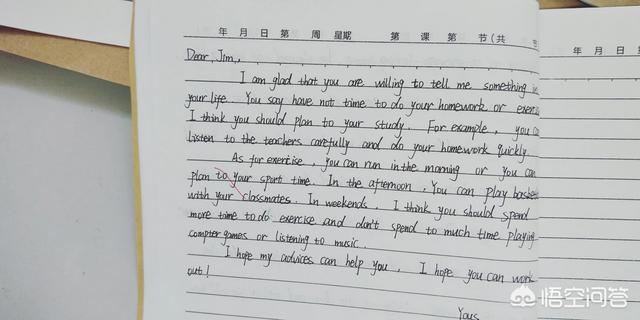 年 月 日 第 周 星期 第 课 第 节(共 节
年 月 日 第
Dear Jim,
I am glad that you are willing to tell me something in
your life. You say have not time to do your homework or exerci
I think you should plan to your study. For example, you can
listen to the teachers carefully and do your homework quickly.
As for exercise, you can run in the morning or you can
plan to your sport time. In the afternoon, You can play baske
with your classmates. In weekends, I think you should spend
more time to do exercise and don't spend to much time playing
compter games or listening to music.
I hope my advices can help you, I hope you can work
out!
Yous
悟空问答